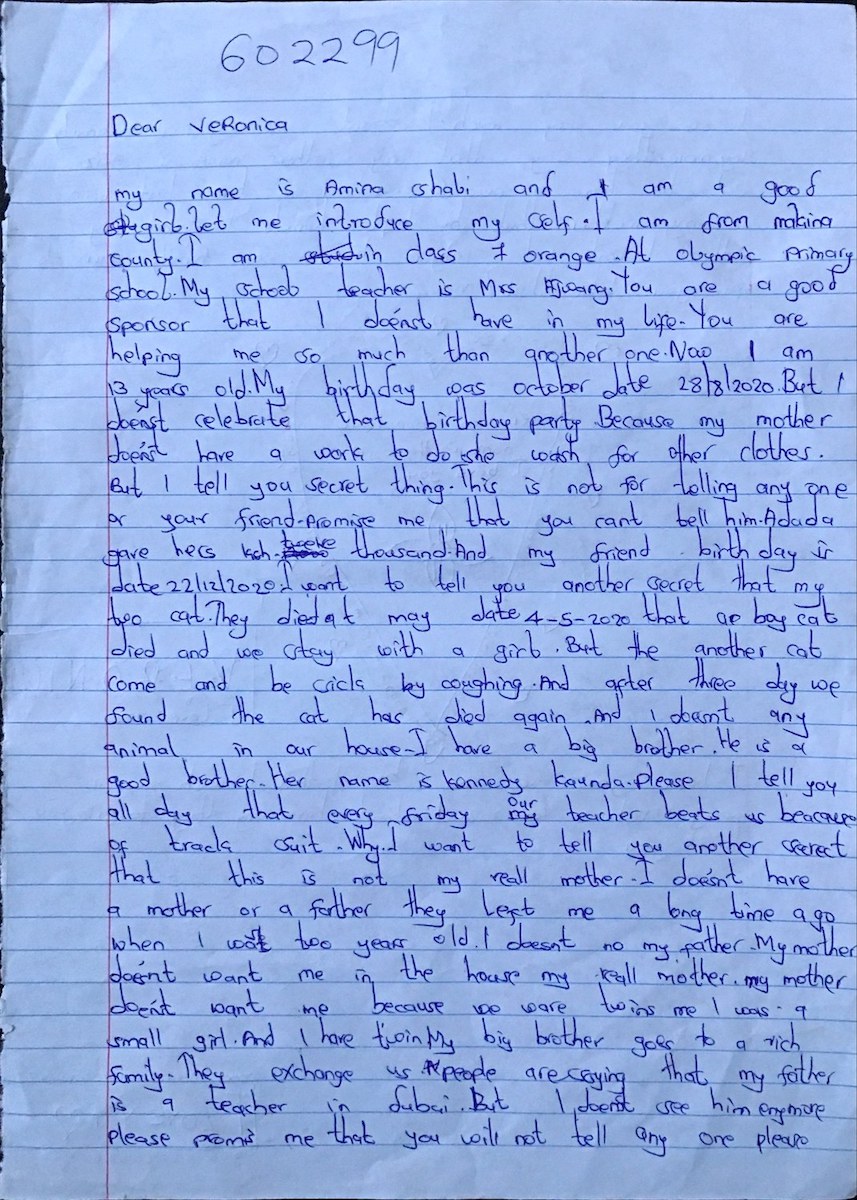 602299
Dear Veronica
my name is Amina shabi and I am a good
girl. let me introduce my self. I am from making
county. I am in class 7 orange. At olympic primary
school. My school teacher is Mrs Ajwang. You are a good
sponsor that I doenst have in my life. You are
helping me so much than another one. Nao I am
13 years old. My birthday was october date 28/8/2020. But I
doenst celebrate that birthday party. Because my mother
doenst have a work to do she wash for other clothes.
But I tell you secret thing. This is not for telling any one
or your friend. promise me that you cant tell him. Adada
gave hers ksh. thousand. And my friend birth day is
date 22/12/2020. I want to tell you another secret that my
too cat. They died at may date 4-5-2020 that a boy cat
died and we stay with a girl. But the another cat
come and be sick by coughing. And after three day we
found the cat has died again. And I doesnt any
animal in our house. I have a big brother. He is a
good brother. Her name is kennedy kaunda. please I tell you
all day that every friday our teacher beats us beacause
of track suit. Why. I want to tell you another secret
that this is not my reall mother. I doesnt have
a mother or a farther they left me a long time ago
when I was too years old. I doesnt no my father. My mother
doesnt want me in the house my reall mother. my mother
doesnt want me because we ware twins me I was a
small girl. And I have twin My big brother goes to a rich
family. They exchange us people are saying that my father
is a teacher in dubai. But I doenst see him enymore
please promis me that you will not tell any one please